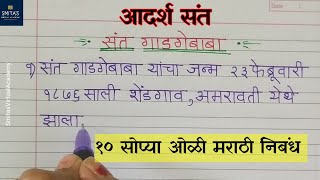 SMITA'S
आदर्श संत
संत गाडगेबाबा
१) संत गाडगेबाबा यांचा जन्म २३ फेब्रूवारी
१८७६ साली शेंडगाव, अमरावती येथे
झाला.
१० सोप्या ओळी मराठी निबंध